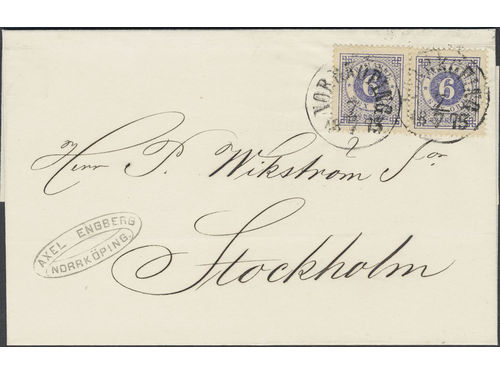 6 6
NORRKÖPING
NORRKÖPING
Herr P. Wikström Jor
Stockholm
AXEL ENGBERG
NORRKÖPING.